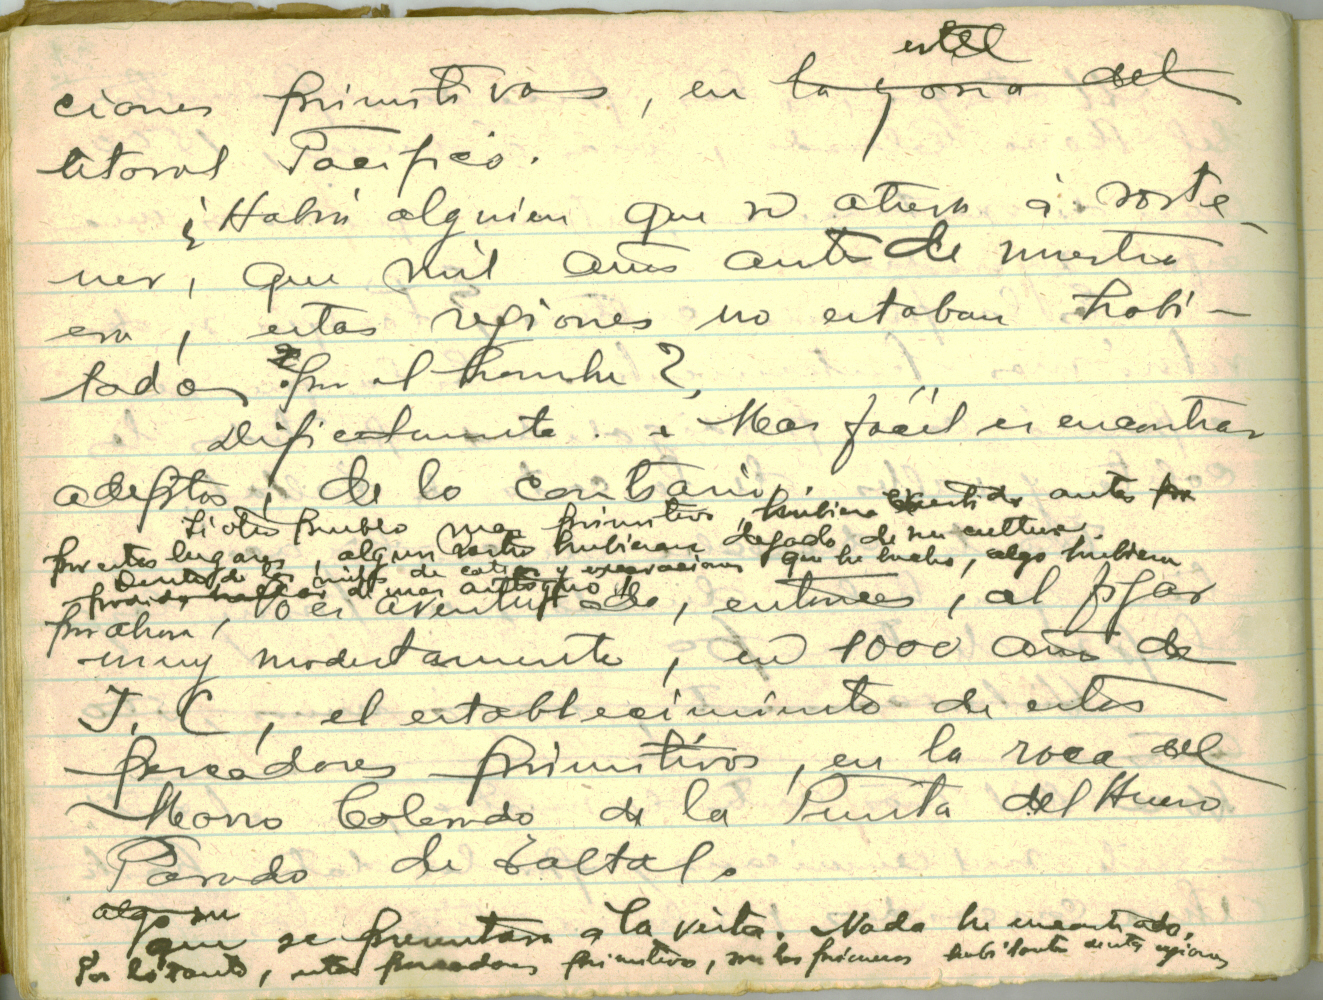 este
ciones primitivas, en la zona del
litoral Pacifico.
¿Habrá alguien que se atreva á soste-
ner, que mil años antes de nuestra
era, estas regiones no estaban habi-
tadas por el hombre?
Dificilmente. Mas fácil es encontrar
adeptos, de lo contrario.
Si otro pueblo mas primitivo, hubiera existido antes por
por estos lugares, algun rastro hubieran dejado de su cultura.
Dentro de los miles de catas y excavaciones que he hecho, algo hubiera
podido hallar de mas antiguo
por ahora, No es aventurado, entonces, al fijar
muy modestamente, en 1000 años de
J. C, el establecimiento de estos
pescadores primitivos, en la roca del
Morro Colorado de la Punta del Hueso
Parado de Taltal.
algo su
que se presentara á la vista. Nada he encontrado.
Por lo tanto, estos pescadores primitivos, son los primeros habitantes de esta regiones